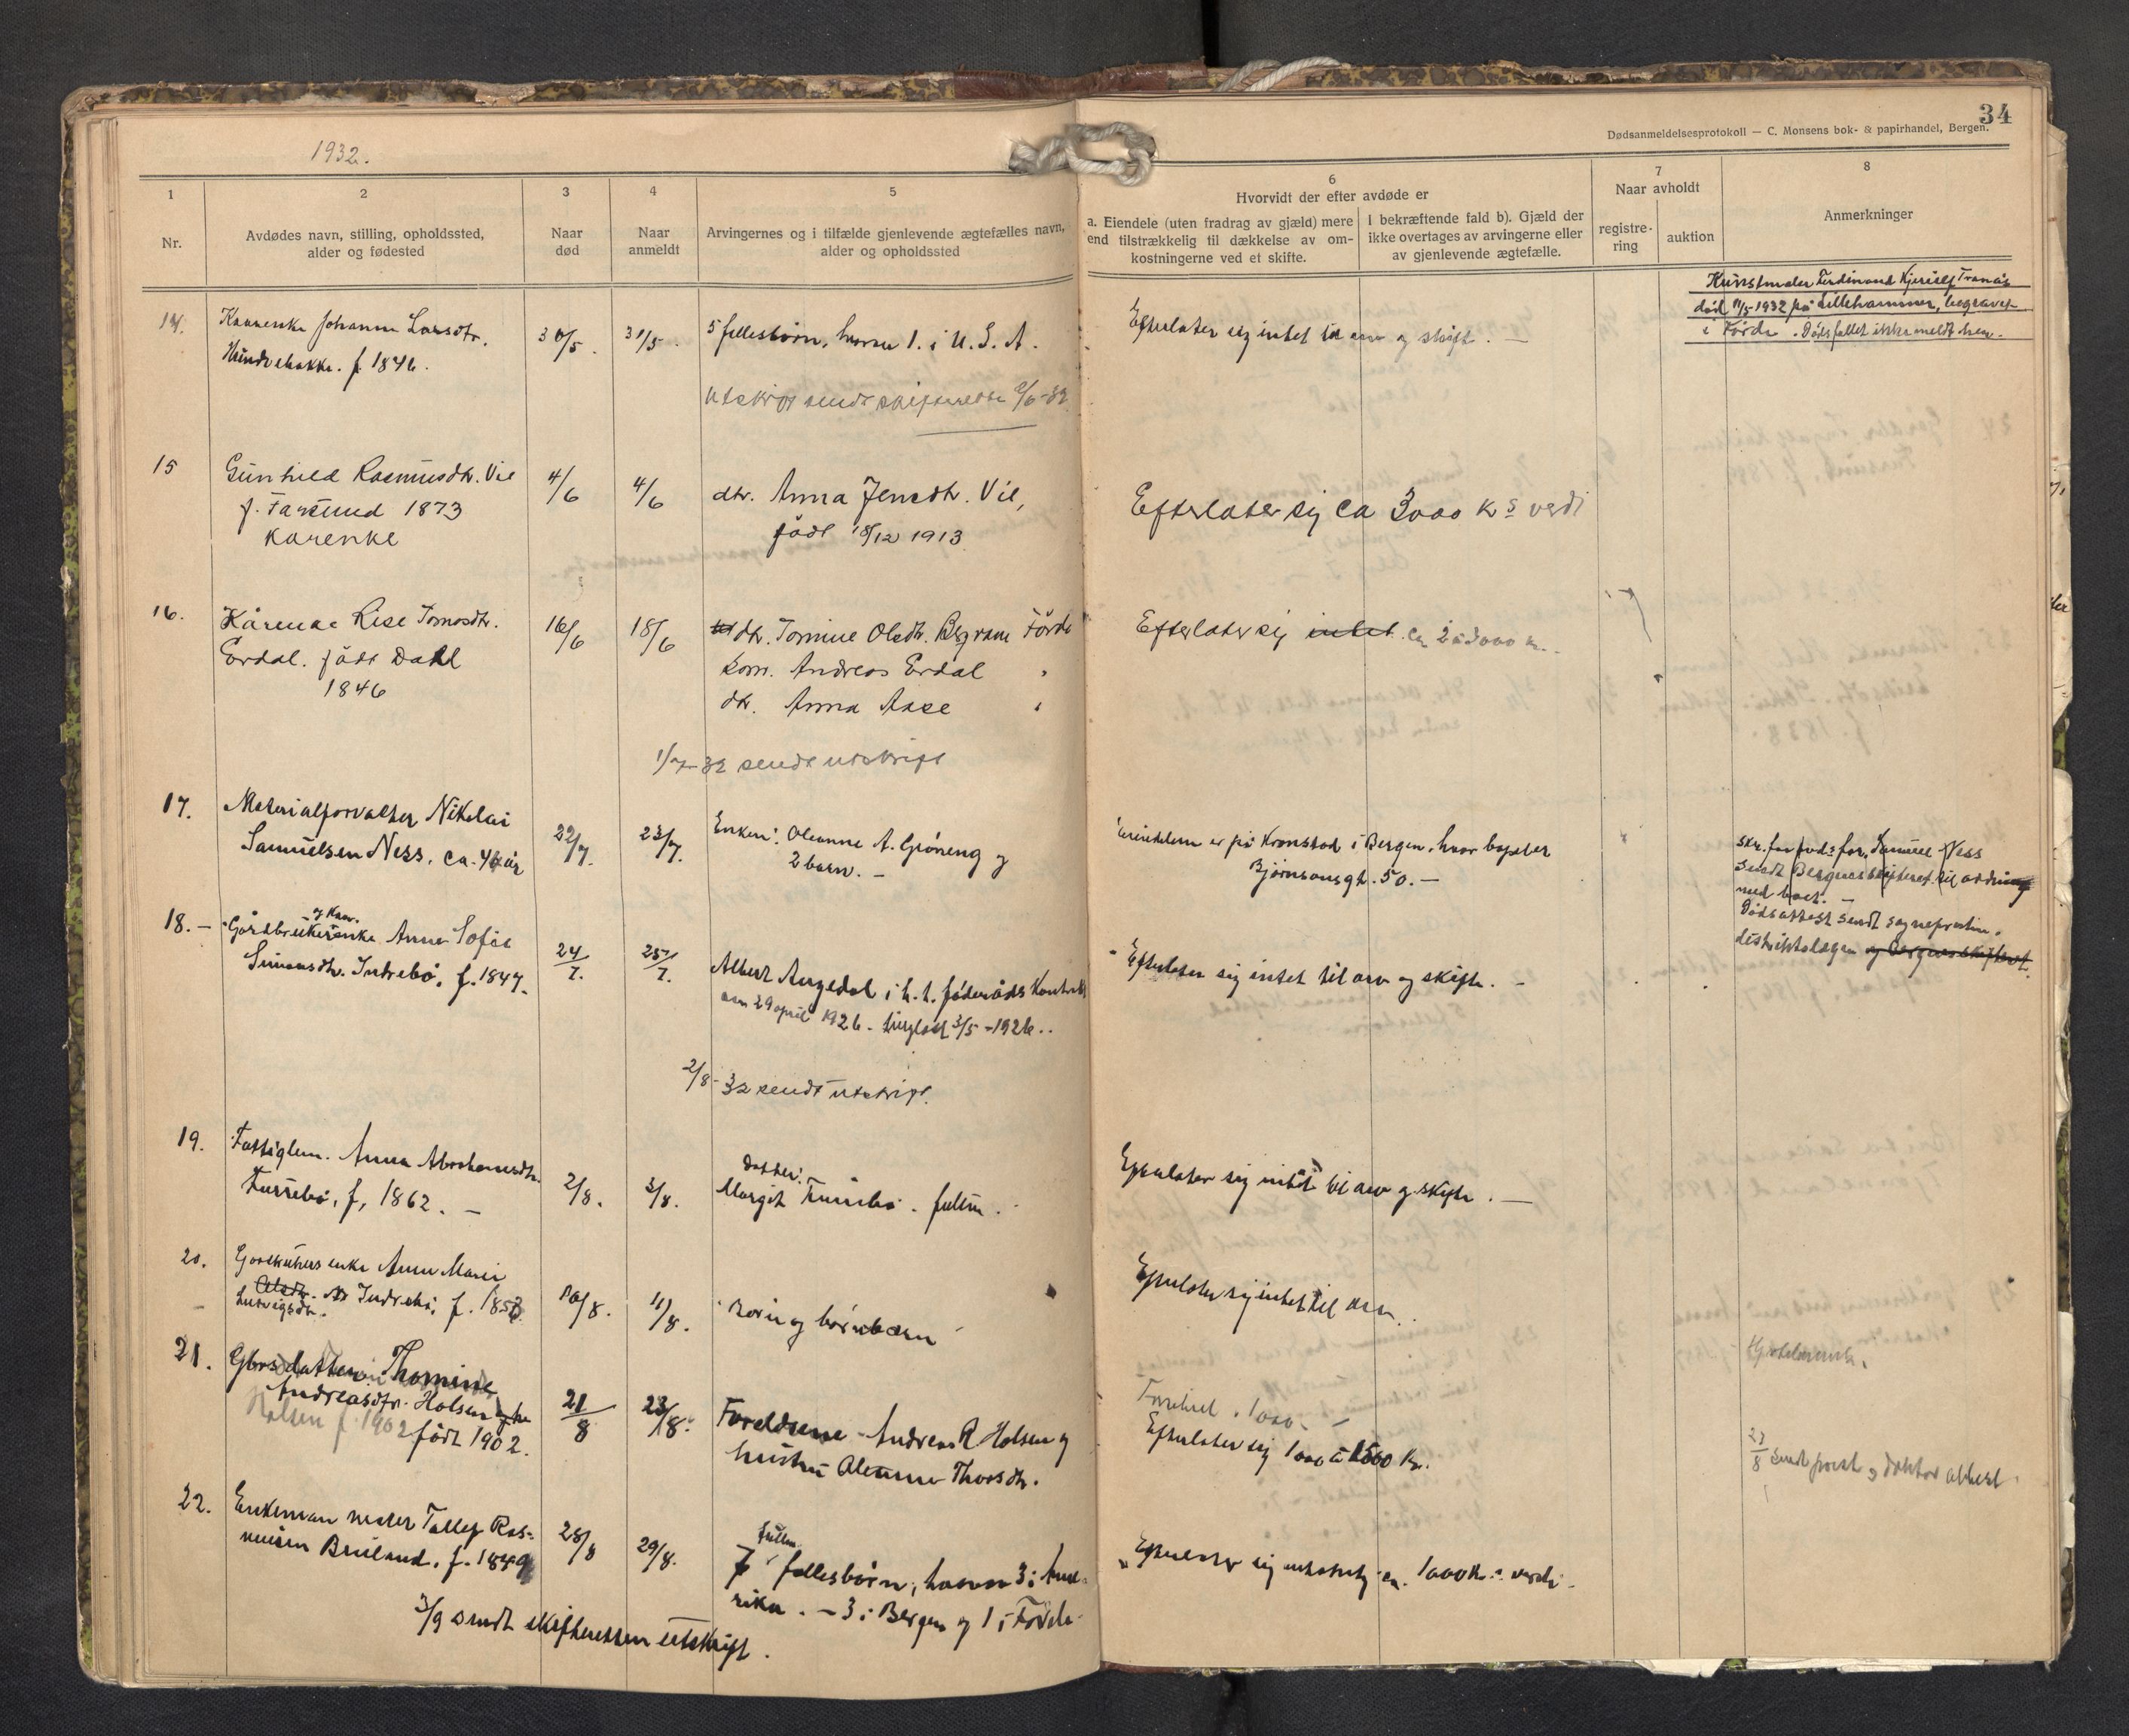 34
Dødsanmeldelsesprotokoll — C. Monsens bok- & papirhandel, Bergen.
1932.
1
2
3
4
5
6
7
8
Nr.
Avdødes navn, stilling, opholdssted,
alder og fødested
Naar
død
Naar
anmeldt
Arvingernes og i tilfælde gjenlevende ægtefælles navn,
alder og opholdssted
Hvorvidt der efter avdøde er
a. Eiendele (uten fradrag av gjæld) mere
end tilstrækkelig til dækkelse av om-
kostningerne ved et skifte.
I bekræftende fald b). Gjæld der
ikke overtages av arvingerne eller
av gjenlevende ægtefælle.
Naar avholdt
registre-
ring
auktion
Anmerkninger
Kunstmaler Ferdinand Kjerulf Tranås
død 11/5-1932 på Lillehammer, begravet
i Førde. Dødsfallet ikke meldt her.
14.
Kaarenke Johanne Larsdtr.
f. 1846.
30/5.
31/5.
5 fellesbörn, hvorav 1. i U.S.A.
Utskrift sendt skifteretten 2/6-32
Efterlater sig intet til arv og skifte. —
15
Gunhild Rasmusdtr. Vie
f. Farsund 1873
Kårenke
4/6
4/6
dtr. Anna Jensdtr. Vie,
født 18/12 1913
Efterlater sig ca 3000 krs verdi
16.
Kårenke Lise Tomasdtr.
Erdal. född Dahl
1846
16/6
18/6
dtr. Tomine Olsdtr. Førde
Andreas Erdal "
dtr. Anna Aase "
1/7-32 sendt utskrift
Efterlater sig intet ca 2 à 3000 kr.
17.
Materialforvalter Nikolai
Samuelsen Ness, ca. 44 år
22/7.
23/7.
Enken: Oleanne A. Grøneng og
2 barn. —
Eiendelene er på Kronstad i Bergen, hvor
Bjørnsonsgt. 50. —
skr. fra Samuel Ness
sendt Bergens skifteret til ordning
med boet. —
Dødsattest sendt sogneprest m.
distriktslægen og Bergens skifteret.
18. —
Gårdbrukerenke og Kaar. Anne Sofie
Simonsdtr. Indrebö, f. 1847.
24/7.
25/7.
Albert Angedal i h. t. föderåds kontrakt
av 29 april 1926 - tinglest 3/5 -1926.
2/8-32 sendt utskrift.
Efterlater sig intet til arv og skifte. —
19.
Fattiglem. Anna Abrahamsdtr.
Furebø, f. 1862. —
2/8.
3/8.
Datter:
Margit Furebø. fullm.
Efterlater sig intet til arv og skifte. —
20.
Gardbrukers enke Anne Marie
Olsdtr. Indrebø, f. 1853
Ludvigsdtr.
10/8.
11/8.
Born og bornborn
Efterlater sig intet til arv.
21.
Gbrsdatter Thomine
Andreasdtr. Holsen
Holsen f. 1902 født 1902.
21/8
23/8.
Foreldrene Andreas R Holsen og
hustru Oleanne Thorsdtr.
1000. —
Efterlater sig 1000 à 1500 Kr.
27/8 sendt prest og doktor attest
22.
Enkeman Tollef Ras-
musen Bruland. f. 1849
28/8
29/8.
fullm.
7 fellesbörn, hvorav 3 i Ame-
rika. — 3 i Bergen og 1 i Førde
3/9 sendt skifteretten utskrift.
Efterlater sig ca. 1000 Kr. verdi.